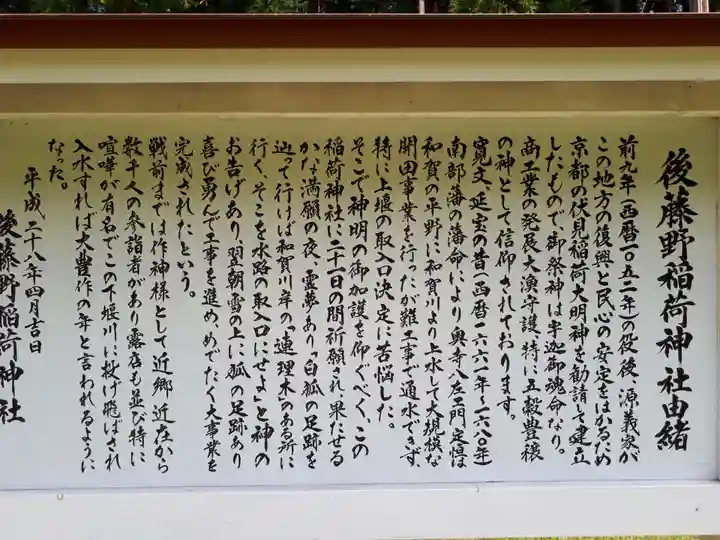 後藤野稲荷神社由緒
前九年(西暦一〇五二年)の役後、源義家が
この地方の復興と民心の安定をはかるため
京都の伏見稲荷大明神を勧請して建立
したもので、御祭神は宇迦御魂命なり。
商工業の発展、大漁守護、特に五穀豊穣
の神として信仰されております。
寛文、延宝の昔(西暦一六六一年~一六八〇年)
南部藩の藩命により奥寺八左エ門定恒は
和賀の平野に和賀川より上水して大規模な
開田事業を行ったが難工事で通水できず、
特に上堰の取入口決定に苦悩した。
そこで神明の御加護を仰ぐべく、この
稲荷神社に二十一日の間祈願され、果たせる
かな満願の夜、霊夢あり「白狐の足跡を
辿って行けば和賀川岸の「連理木」のある所に
行く、そこを水路の取入口にせよ」と神の
お告げあり、翌朝雪の上に狐の足跡あり
喜び勇んで工事を進め、めでたく大事業を
完成されたという。
戦前までは作神様として近郷、近在から
数千人の参詣者があり露店も並び特に
喧嘩が有名でこの下堰川に投げ飛ばされ
入水すれば大豊作の年と言われるように
なった。
平成二十八年四月吉日
後藤野稲荷神社